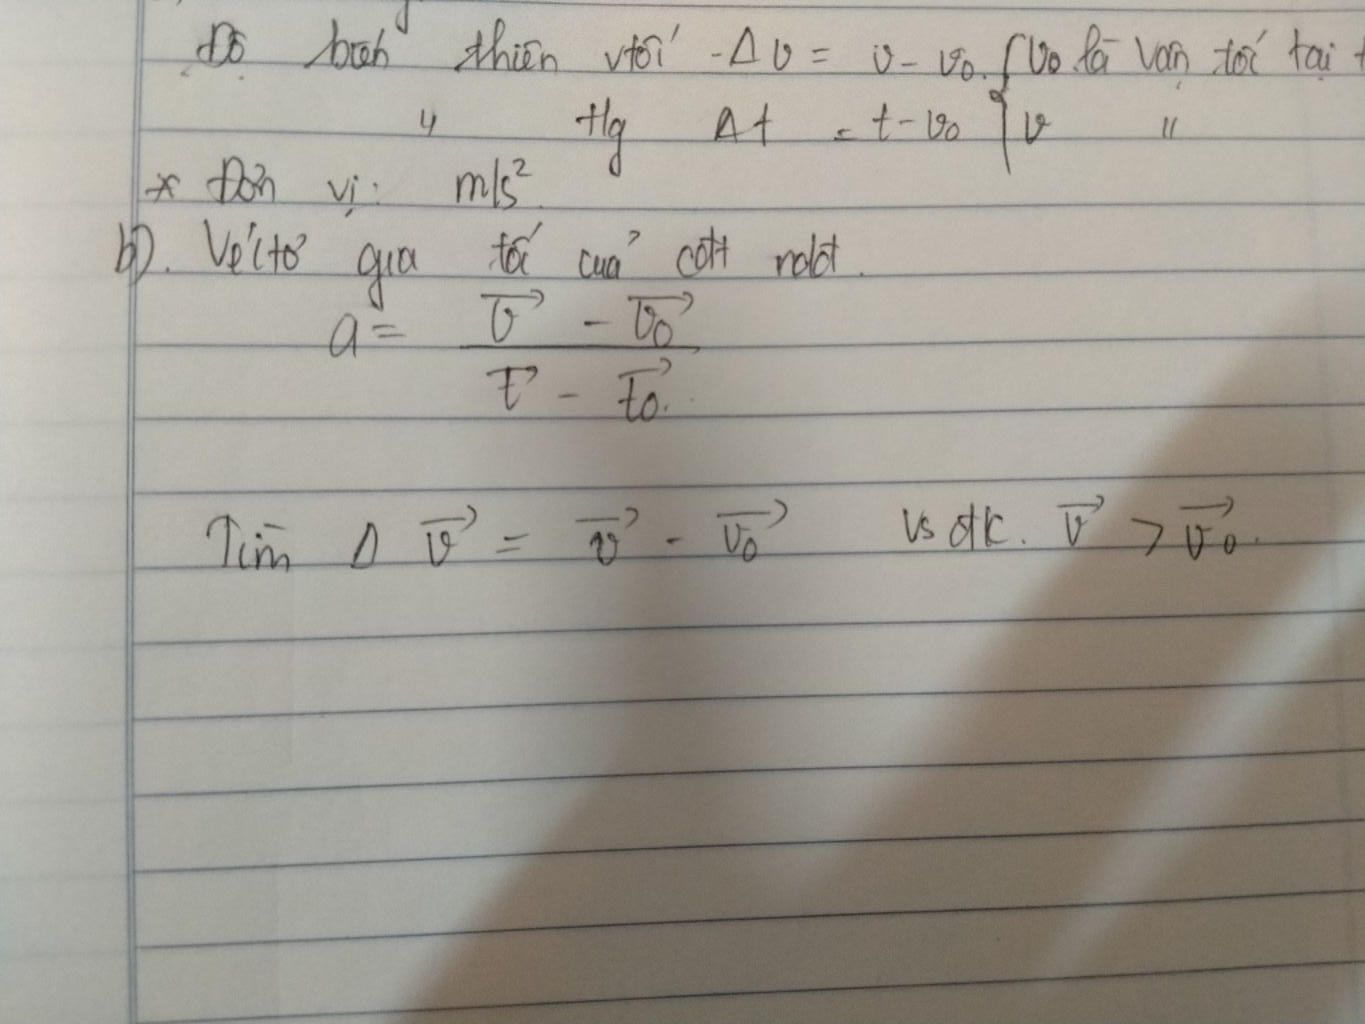 Độ biến thiên vtốc - Δv = v - v₀. { v₀ là vận tốc tại t
" tg Δt = t - v₀ { v "
* Đơn vị: m/s².
b). Véctơ gia tốc của cđt nđđ.
a = (v⃗ - v₀⃗) / (t⃗ - t₀⃗).
Tìm Δ v⃗ = v⃗ - v₀⃗ vs đk. v⃗ > v₀⃗.